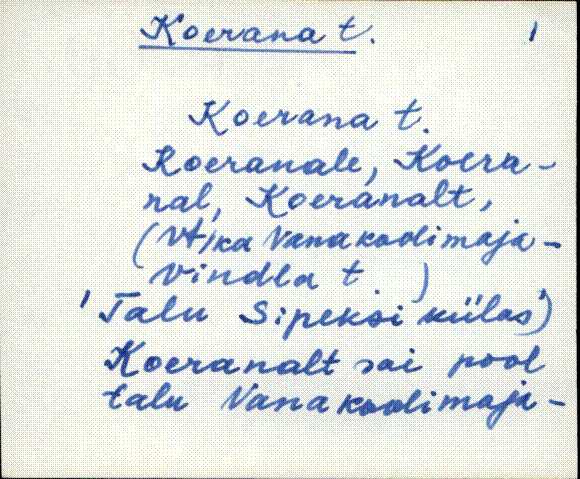 Koerana t. 1
Koerana t.
Koeranale, Koera-
nal, Koeranalt,
(Vt ka Vanakoolimaja-
Vindla t )
'Talu Sipeksi külas')
Koeranalt sai pool
talu Vanakoolimaja-